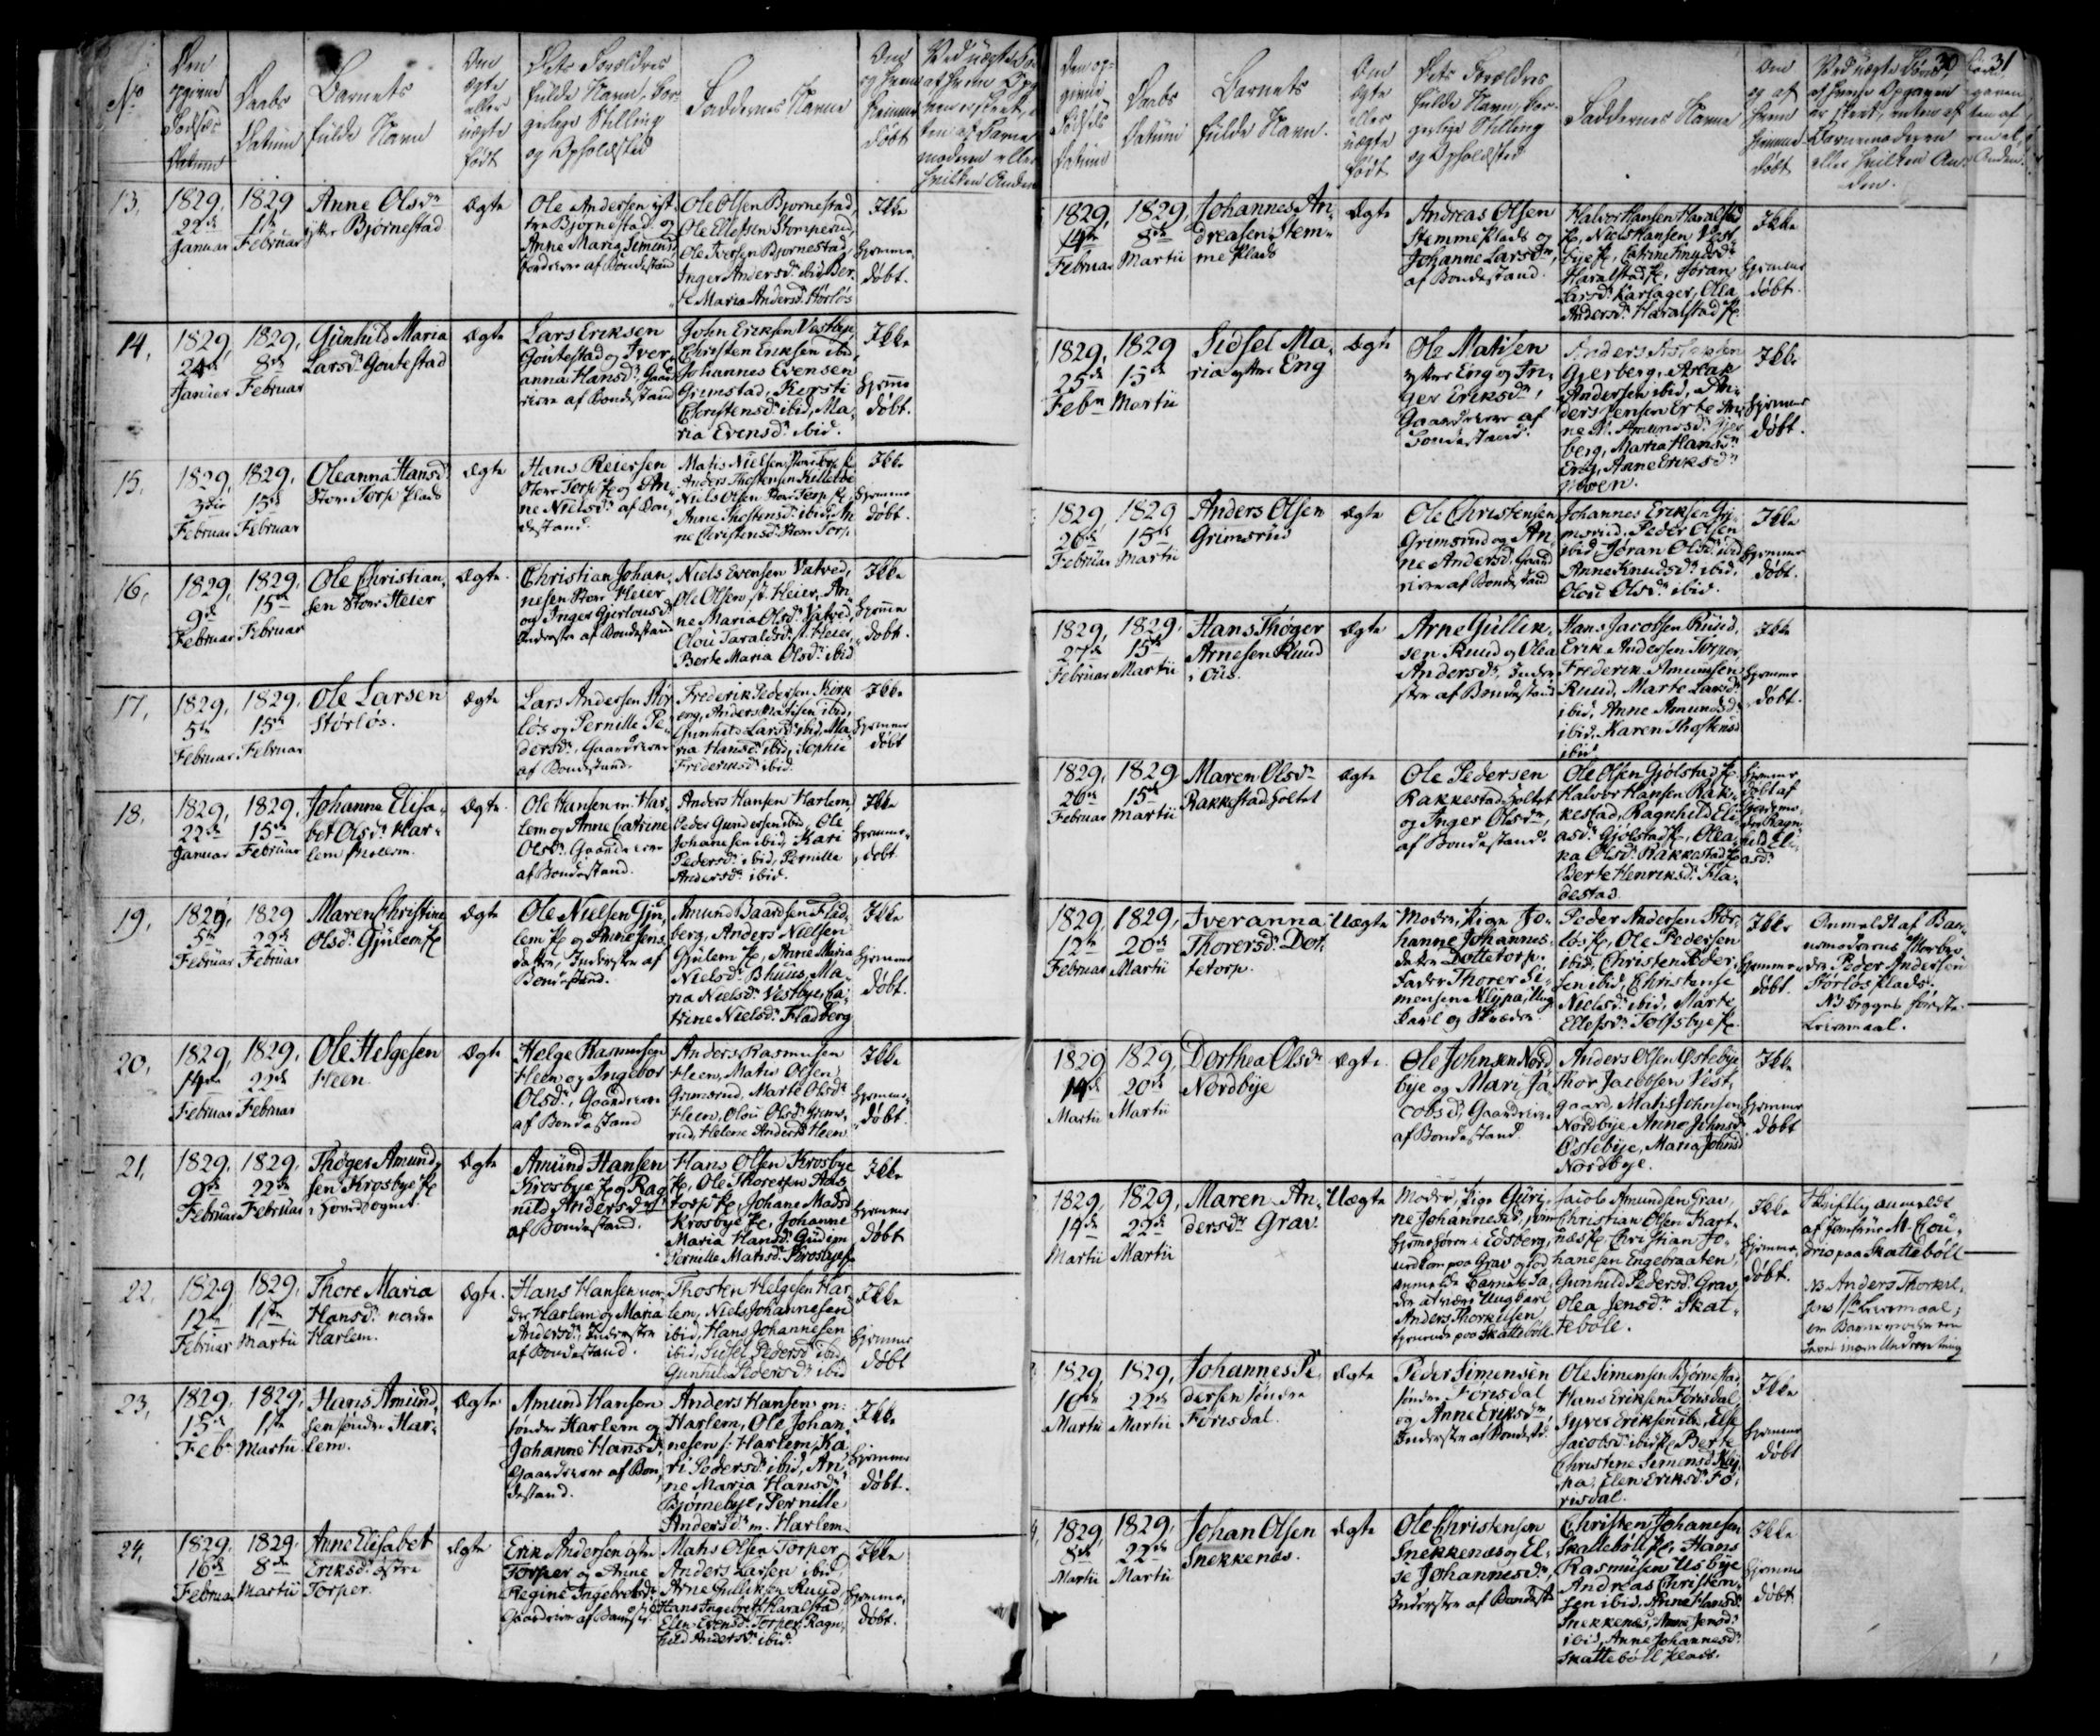 No
Den opgivne Fødsels Datum
Daabs Datum
Barnets fulde Navn
Om ægte eller uægte født
Dets Forældres fulde Navn, borgerlige Stilling og Opholdsted
Faddernes Navne
Om og hvem hjemme døbt
13,
1829,
22de
Januar
1829
1te
Februar
Anne Olsdr
ytter Bjørnestad
ægte
Ole Andersen yt-
tere Bjørnestad og
Anne Maria Simens
Gaardrere af Bondestand
Ole Olsen Bjornestad,
Ole Ellefsen Stomperud,
Ole Iversen Bjornestad,
Inger Andersdr ibid Ber-
te Maria Andersd: Størløs
Ikke
hjemme
døbt.
14,
1829,
24de
Januar
1829,
8de
Februar
Gunhild Maria
Larsdr Goutestad
ægte
Lars Eriksen
Goutestad og Iver-
anna Hansdr Gaard
rere af Bondestand
John Eriksen Vestbye
Christen Eriksen ibid,
Johannes Evensen
Grimstad, Kersti
Christensdr ibid, Ma-
ria Evensdr ibid.
Ikke
hjemme
døbt.
15,
1829,
3die
Februar
1829,
15de
Februar
Oleanna Hansd
Store Torp Plads
ægte
Hans Reiersen
Store Torp Pl og An-
ne Nielsdr af Bon-
destand
Matis Nielsen Store Torp Pl
Anders Thostensen Killebo
Niels Olsen Store Torp Pl,
Anne Thostensdr ibid, An-
ne Christensd: Store Torp
Ikke
hjemme
døbt.
16,
1829,
9de
Februar
1829,
15de
Februar
Ole Christian-
sen Store Heier
ægte
Christian Johan-
nesen Store Heier
og Inger Gjerlousdr
Inderster af Bondestand
Niels Evensen Vatved,
Ole Olsen st. Heier, An-
ne Maria Olsd: Vatved,
Olou Taraldsd: st. Heier,
Berte Maria Olsdr ibid
Ikke
hjemme
dobt.
17,
1829,
5te
Februar
1829,
15de
Februar
Ole Larsen
Størløs.
ægte
Lars Andersen Stør
løs og Pernille Pe-
dersdr, Gaardrere
af Bondestand.
Frederik Pedersen Kirk
eng, Anders Matisen ibid,
Gunhild Larsdr ibid, Ma-
ria Hansdr ibid, Sophie
Frederiksdr ibid.
Ikke
hjemme
døbt
18,
1829,
22de
Januar
1829,
15de
Februar
Johanna Elisa-
bet Olsdr Har-
lem mellem.
ægte
Ole Hansen m. Har-
lem og Anne Catrine
Olsdr Gaardrere
af Bondestand.
Anders Hansen Harlem
Peder Gundersen ibid, Ole
Johannesen ibid, Kari
Pedersdr ibid, Pernille
Andersdr ibid.
Ikke
hjemme
døbt.
19,
1829,
5te
Februar
1829
22de
Februar
Maren Christine
Olsdr Gjulem Pl
ægte
Ole Nielsen Gju-
lem Pl og Anne Jens
datter, Inderster af
Bondestand.
Amund Baardsen Flad-
berg, Anders Nielsen
Gjulem Pl, Anne Maria
Nielsdr Bhuus, Ma-
ria Nielsd: Vestbye, Ca-
trine Nielsdr Fladberg
Ikke
hjemme
døbt.
20,
1829,
14de
Februar
1829,
22de
Februar
Ole Helgesen
Heen
ægte
Helge Rasmusen
Heen og Ingebor
Olsdr, Gaardrere
af Bondestand
Anders Rasmusen
Heen, Matis Olsen
Grimsrud, Marte Olsdr
Heen, Olou Olsdr Grims-
rud, Helene Andersd Heen
Ikke
hjemme
døbt.
21,
1829,
9de
Februar
1829,
22de
Februar
Thøger Amund-
sen Krosbye Pl
i hovedsognet.
ægte
Amund Hansen
Krosbye Pl og Rag-
nild Andersdr
af Bondestand.
Hans Olsen Krosbye
Pl, Ole Thoresen Aas-
torp Pl, Johane Madsd
Krosbye Pl, Johanne
Maria Hansdr Gudem
Pernille Matisd: Krosbye Pl
Ikke
hjemme
døbt
22,
1829,
12te
Februar
1829,
1ste
Martii
Thore Maria
Hansdr nordre
Harlem.
ægte
Hans Hansen nor-
dre Harlem og Maria
Andersdr, Inderster
af Bondestand.
Thosten Helgesen Har-
lem, Niels Johannesen
ibid, Hans Johannesen
ibid, Sidsel Pedersd ibid,
Gunhild Pedersdr ibid
Ikke
hjemme
døbt
23,
1829,
15de
Febr
1829,
1ste
Martii
Hans Amund-
sen søndre Har-
lem.
ægte
Amund Hansen
søndre Harlem og
Johanne Hansdr
Gaardrere af Bon-
destand.
Anders Hansen m:
Harlem, Ole Johan-
nesen s: Harlem, Ka-
ri Pedersdr ibid, An-
ne Maria Hansdr
Bjørnebye, Pernille
Andersdr m. Harlem
Ikke
hjemme
døbt.
24,
1829,
16de
Februar
1829,
8de
Martii
Anne Elisabet
Eriksdr østre
Torper.
ægte
Erik Andersen østre
Torper og Anne
Regine Ingebretsdr
Gaardrere af Bondest.
Matis Olsen Torper
Anders Larsen ibid,
Arne Gulliksen Ruud
Hans Ingebretsen Haralstad,
Elen Evensdr Torper, Ragn-
hild Andersdr ibid.
Ikke
hjemme
døbt.
30
31
Den opgivne Fødsels Datum
Daabs Datum
Barnets fulde Navn.
Om ægte eller uægte født
Dets Forældres fulde Navn, borgerlige Stilling og Opholdsted
Faddernes Navne
Om og af hvem hjemme døbt
Ved uægte Børn, af hvem Opgaven er skeet, enten af Barnemoderen eller hvilken Anden.
1829,
14de
Februar
1829,
8de
Martii
Johannes An-
dreasen Stem-
me Plads
ægte
Andreas Olsen
Stemme Plads og
Johanne Larsdr,
af Bondestand.
Halvor Hansen Haralstad
Pl, Niels Hansen Vest-
bye Pl, Catrine Knudsdr
Haralstad Pl, Joran
Larsdr Karlager, Olea
Andersdr Haralstad Pl.
Ikke
hjemme
døbt.
1829,
25de
Febr
1829
15de
Martii
Sidsel Ma-
ria yttre Eng
ægte
Ole Matisen
yttre Eng og In-
ger Eriksdr,
Gaardrere af
Bondestand.
Anders Aslaksen
Gjerberg, Aslak
Andersen ibid, An-
ders Jensen Erte An-
ne M. Amundsd: Gjer
berg, Maria Hansdr
Eng, Anne Eriksdr
Moen.
Ikke
hjemme
døbt.
1829,
26de
Februar
1829
15de
Martii
Anders Olsen
Grimsrud
ægte
Ole Christensen
Grimsrud og An-
ne Andersd: Gaard
rere af Bondestand
Johannes Eriksen Gri-
msrud, Peder Olsen
ibid Joran Olsd: ibid
Anne Knudsdr ibid,
Olou Olsdr ibid.
Ikke
hjemme
døbt.
1829,
27de
Februar
1829,
15de
Martii
Hans Thøger
Arnesen Ruud
i Øus.
ægte
Arne Gullik-
sen Ruud og Olea
Andersdr, Inder-
ster af Bondestand
Hans Jacobsen Ruud,
Erik Andersen Torper
Frederik Amundsen
Ruud, Marte Larsdr
ibid, Anne Amundsd
ibid, Karen Thostensd
ibid
Ikke
hjemme
døbt.
1829,
26de
Februar
1829,
15de
Martii
Maren Olsdr
Rakkestad holtet
ægte
Ole Pedersen
Rakkestad holtet
og Inger Olsdr,
af Bondestand.
Ole Olsen Gjølstad Pl
Halvor Hansen Rak-
kestad, Ragnhild Eli-
asdr Gjølstad Pl, Olea-
na Olsdr Rakkestad Pl
Berte Henriksd: Fla-
destad
hjemme
døbt af
Gjordemo-
der Ragn-
hild Eli-
asdr
1829,
12te
Februar
1829,
20de
Martii
Iveranna
Thorersd: Dot-
tetorp.
Uægte
Moder, Pige Jo-
hanne Johannes-
datter Dottetorp.
Fader Thorer Si-
mensen Klypa, Ung-
karl og Skræder
Peder Andersen Stør-
løs Pl, Ole Pedersen
ibid, Christen Peder-
sen ibid, Christense
Nielsdr ibid, Marte
Ellefsdr Tolfsbye Pl
Ikke
hjemme
døbt.
Anmeldt af Bar-
nemoderens Morbro-
der Peder Andersen
Størløs Plads.
NB begges første
Leiermaal.
1829
14de
Martii
1829,
20de
Martii
Dorthea Olsdr
Nordbye
ægte.
Ole Johnsen Nord-
bye og Mari Ja-
cobsdr, Gaardrere
af Bondestand.
Anders Olsen Østebye,
Thor Jacobsen Vest-
gaard, Matis Johnsen
Nordbye Anne Johnsdr
Østebye, Maria Johnsd
Nordbye.
Ikke
hjemme
døbt
1829,
14de
Martii
1829,
22de
Martii
Maren An-
dersdr Grav.
Uægte
Moder, Pige Guri-
ne Johannesd, som
hjemhører i Edsberg,
nedkom paa Grav og lod
anmelde Barnets Fa-
der at være Ungkarl
Anders Thorkilsen
tjenende paa Skattebøle
Jacob Amundsen Grav,
Christian Olsen Kart-
næs Pl, Christian Jo-
hanesen Engebraaten,
Gunhild Pedersdr Grav,
Olea Jensdr Skat-
tebøle.
Ikke
hjemme
døbt.
Skriftlig anmeldt
af Jomfrue M. Cou-
dria paa Skattebøll
NB Anders Thorkil-
sens 1ste Leiermaal,
om Barnemoderen
1829,
16de
Martii
1829,
22de
Martii
Johannes Pe-
dersen søndre
Forisdal.
ægte
Peder Simensen
søndre Forisdal
og Anne Eriksdr,
Inderster af Bondestd.
Ole Simensen Bjørnestad,
Hans Eriksen Forisdal,
Syver Eriksen ibid, Else
Jacobsd: ibid Pl Berte
Christine Simensd Kly-
pa, Elen Eriksdr Fo-
risdal.
Ikke
hjemme
døbt
1829,
8de
Martii
1829,
22de
Martii
Johan Olsen
Snekkenæs.
ægte
Ole Christensen
Snekkenæs og El-
se Johannesdr,
Inderster af Bondestd
Christen Johanesen
Skattebøll Pl, Hans
Rasmusen Usbye
Andreas Christen-
sen ibid. Anne Hansd:
Snekkenæs, Anne Jensdr
ibid, Anne Johannesdr
Skattebøll Plads.
Ikke
hjemme
døbt.